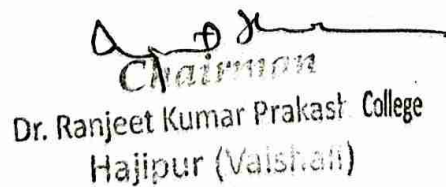 Chairman
Dr. Ranjeet Kumar Prakash College
Hajipur (Vaishali)